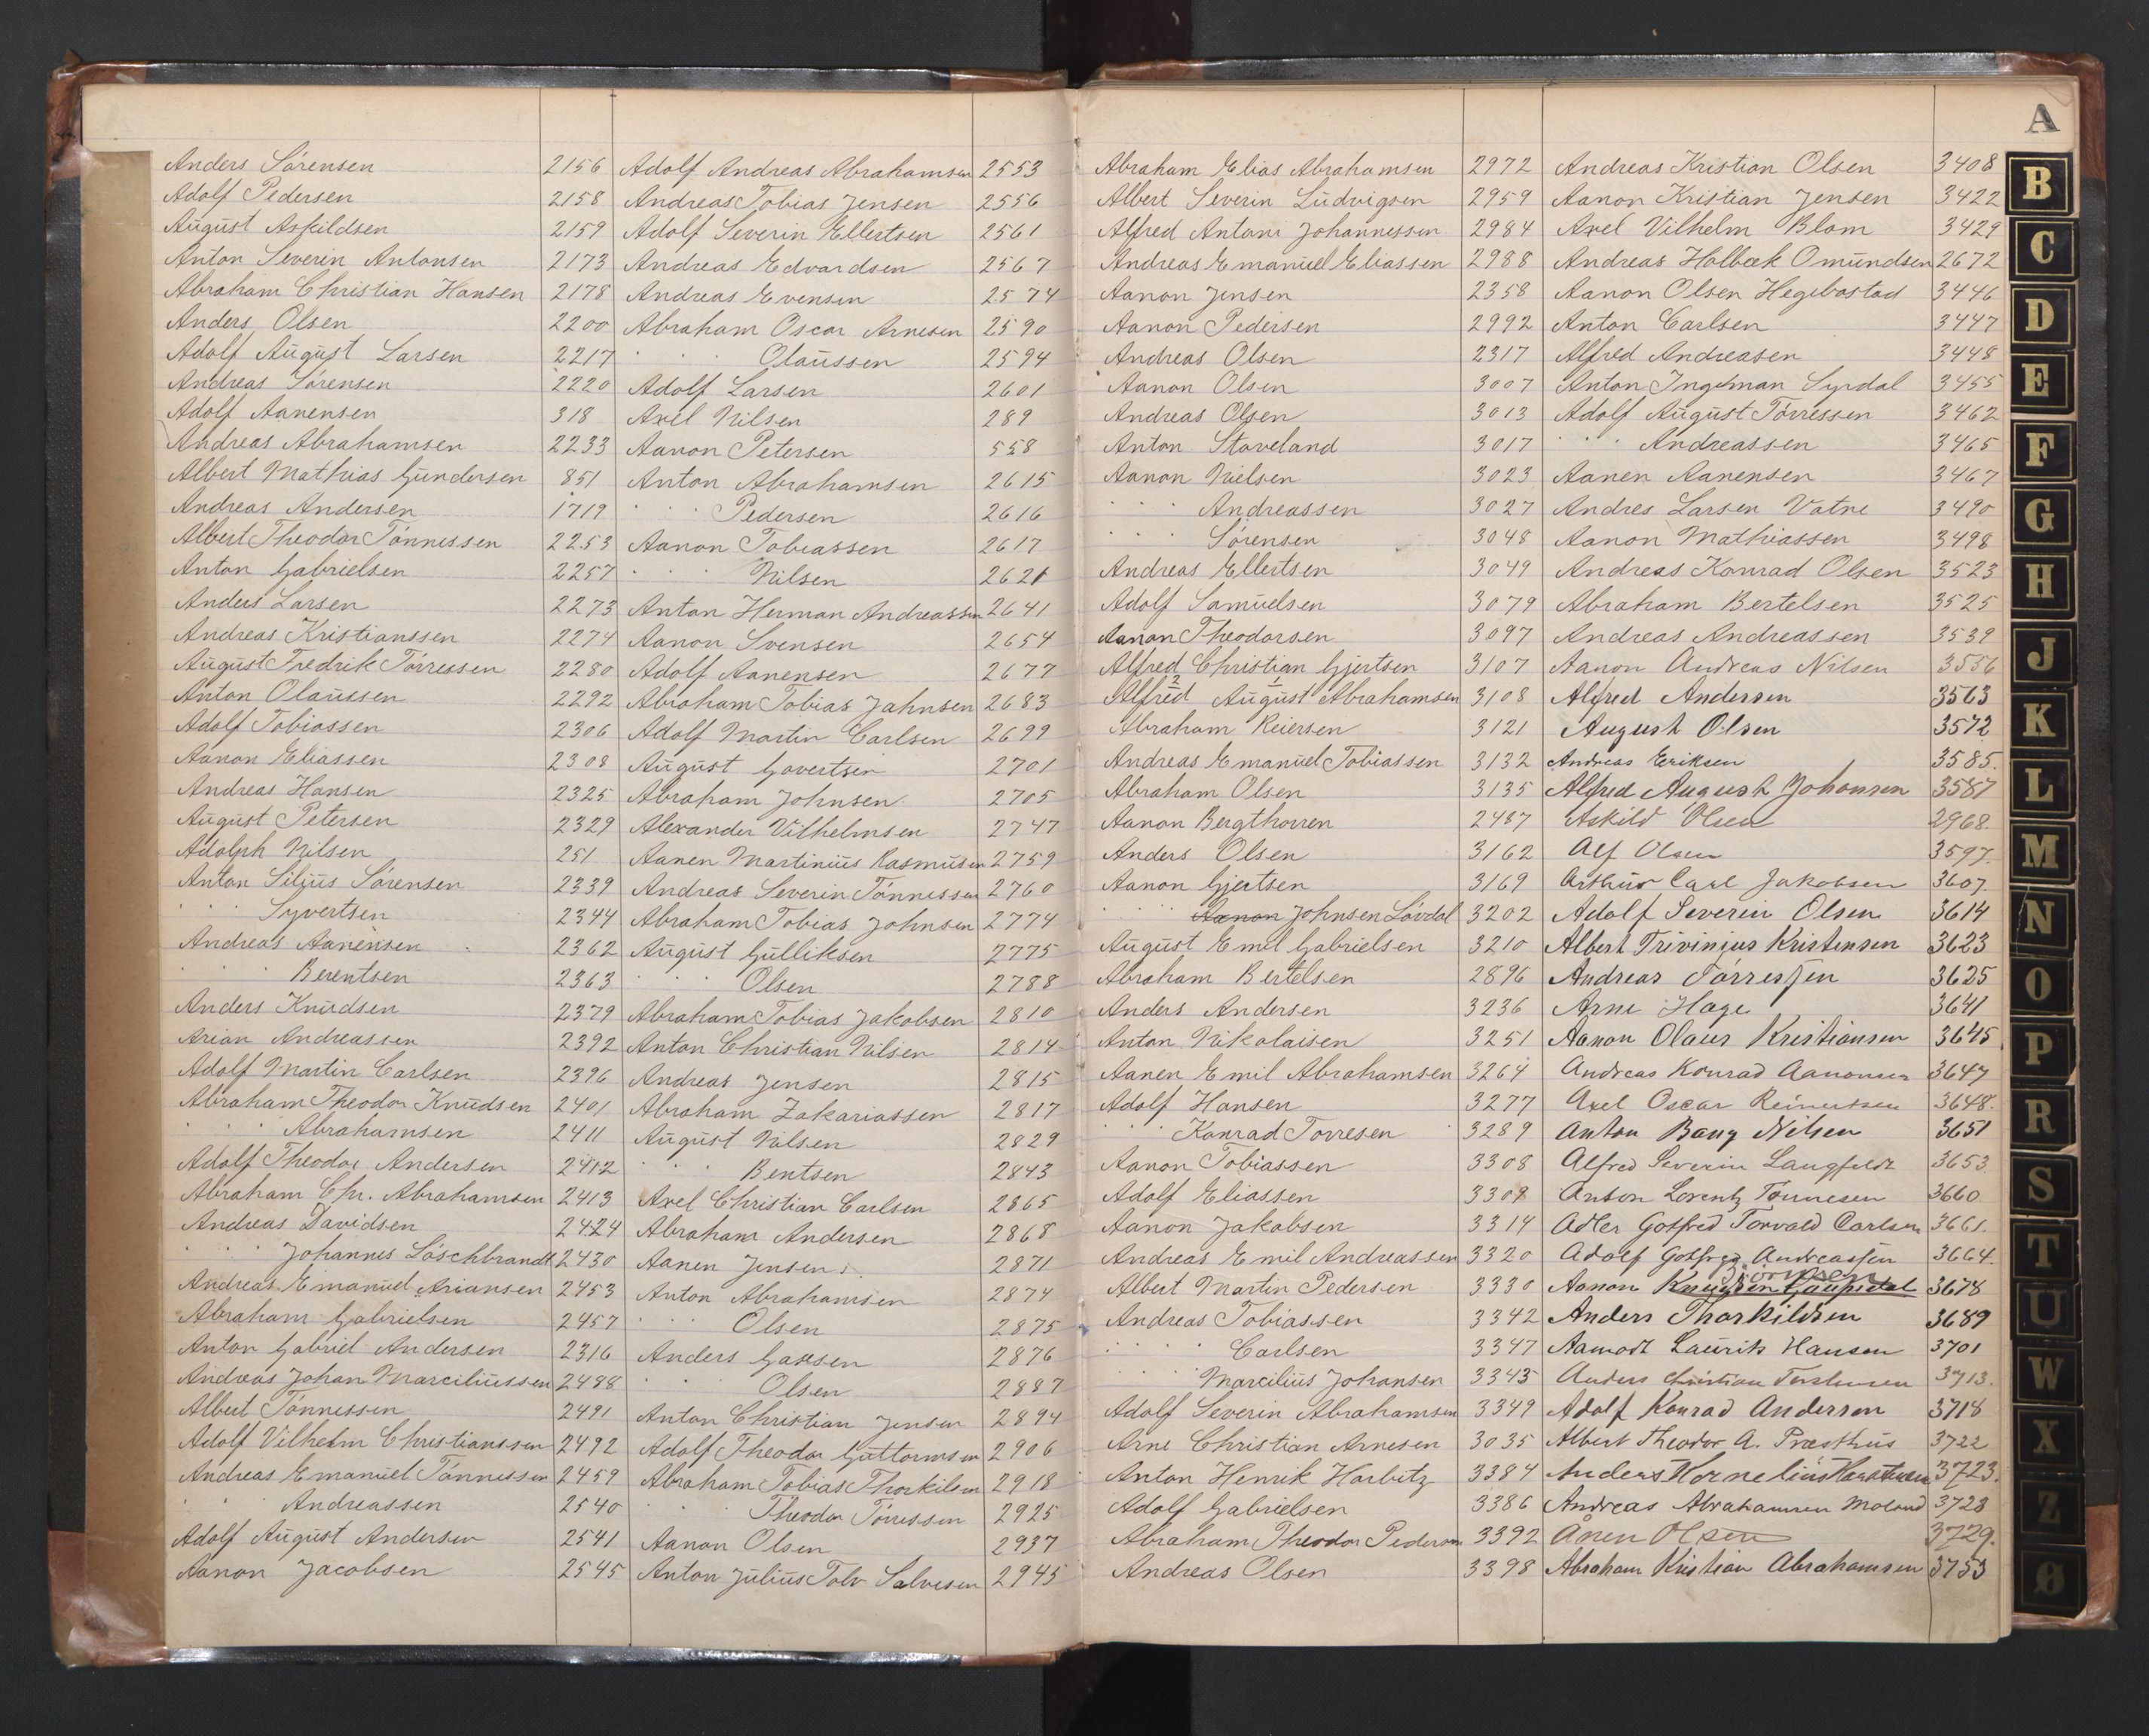 A
Anders Sórensen 2156
Adolf Pedersen 2158
August Askildsen 2159
Anton Severin Antonsen 2173
Abraham Christian Hansen 2178
Anders Olsen 2200
Adolf August Larsen 2217
Andreas Sórensen 2220
Adolf Aanensen 318
Andreas Abrahamsen 2233
Albert Mathias Gundersen 851
Andreas Andersen 1719
Albert Theodor Tónnessen 2253
Anton Gabrielsen 2257
Anders Larsen 2273
Andreas Kristianssen 2274
August Fredrik Tórressen 2280
Anton Olaussen 2292
Adolf Tobiassen 2306
Aanon Eliassen 2308
Andreas Hansen 2325
August Petersen 2329
Adolph Nilsen 251
Anton Silius Sórensen 2339
" " " Syvertsen 2344
Andreas Aanensen 2362
" " " Berentsen 2363
Anders Knudsen 2379
Arian Andreassen 2392
Adolf Martin Carlsen 2396
Abraham Theodor Knudsen 2401
" " " Abrahamsen 2411
Adolf Theodor Andersen 2412
Abraham Chr. Abrahamsen 2413
Andreas Davidsen 2424
" " " Johannes Lóschbrandt 2430
Andreas Emanuel Ariansen 2453
Abraham Gabrielsen 2457
Anton Gabriel Andersen 2316
Andreas Johan Marciliussen 2488
Albert Tónnessen 2491
Adolf Vilhelm Christianssen 2492
Andreas Emanuel Tónnessen 2459
" " Andreassen 2540
Adolf August Andersen 2541
Aanon Jacobsen 2545
Adolf Andreas Abrahamsen 2553
Andreas Tobias Jensen 2556
Adolf Severin Ellertsen 2561
Andreas Edvardsen 2567
Andreas Evensen 2574
Abraham Oscar Arnesen 2590
" " " Olaussen 2594
Adolf Larsen 2601
Axel Nilsen 289
Aanon Petersen 558
Anton Abrahamsen 2615
" " " Pedersen 2616
Aanon Tobiassen 2617
" " " Nilsen 2621
Anton Herman Andreassen 2641
Aanon Svensen 2654
Adolf Aanensen 2677
Abraham Tobias Jahnsen 2683
Adolf Martin Carlsen 2699
August Govertsen 2701
Abraham Johnsen 2705
Alexander Vilhelmsen 2747
Aanen Martinius Rasmussen 2759
Andreas Severin Tónnessen 2760
Abraham Tobias Johnsen 2774
August Gulliksen 2775
" " " Olsen 2788
Abraham Tobias Jakobsen 2810
Anton Christian Nilsen 2814
Andreas Jensen 2815
Abraham Zakariassen 2817
August Nilsen 2829
" " " Bentsen 2843
Axel Christian Carlsen 2865
Abraham Andersen 2868
Aanen Jensen 2871
Anton Abrahamsen 2874
" " " Olsen 2875
Anders Gaxsen 2876
" " " Olsen 2887
Anton Christian Jensen 2894
Adolf Theodor Guttormsen 2906
Abraham Tobias Thorkilsen 2918
" " " Theodor Tórressen 2925
Aanon Olsen 2937
Anton Julius Tolv Salvesen 2945
Abraham Elias Abrahamsen 2972
Albert Severin Ludvigsen 2959
Alfred Antoni Johannessen 2984
Andreas Emanuel Eliassen 2988
Aanon Jensen 2358
Aanon Pedersen 2992
Andreas Olsen 2317
Aanon Olsen 3007
Andreas Olsen 3013
Anton Staveland 3017
Aanon Nielsen 3023
" " " Andreassen 3027
" " " Sórensen 3048
Andreas Ellertsen 3049
Adolf Samuelsen 3079
Aanon Theodorsen 3097
Alfred Christian Gjertsen 3107
Alfred 2 August 1 Abrahamsen 3108
Abraham Reiersen 3121
Andreas Emanuel Tobiassen 3132
Abraham Olsen 3135
Aanon Bergthorsen 2487
Anders Olsen 3162
Aanon Gjertsen 3169
" " " Aanon Johnsen Lóvdal 3202
August Emil Gabrielsen 3210
Abraham Bertelsen 2896
Anders Andersen 3236
Anton Nikolaisen 3251
Aanen Emil Abrahamsen 3264
Adolf Hansen 3277
" " " Konrad Torresen 3289
Aanon Tobiassen 3308
Adolf Eliassen 3309
Aanon Jakobsen 3314
Andreas Emil Andreassen 3320
Albert Martin Pedersen 3330
Andreas Tobiassen 3342
" " " Carlsen 3347
" " Marcilius Johansen 3343
Adolf Severin Abrahamsen 3349
Arne Christian Arnesen 3035
Anton Henrik Harbitz 3384
Adolf Gabrielsen 3386
Abraham Theodor Pedersen 3392
Andreas Olsen 3398
Andreas Kristian Olsen 3408
Aanon Kristian Jensen 3422
Axel Vilhelm Blom 3429
Andreas Holbæk Omundsen 2672
Aanon Olsen Hegebostad 3446
Anton Carlsen 3447
Alfred Andreasen 3448
Anton Ingelman Syrdal 3455
Adolf August Tórressen 3462
" " " Andreassen 3465
Aanen Aanensen 3467
Andres Larsen Vatne 3490
Aanon Mathiassen 3498
Andreas Konrad Olsen 3523
Abraham Bertelsen 3525
Andreas Andreassen 3539
Aanon Andreas Nilsen 3556
Alfred Andersen 3563
August Olsen 3572
Andreas Eriksen 3585.
Alfred August Johansen 3587
Askild Olsen 2968.
Alf Olsen 3597.
Arthur Carl Jakobsen 3607.
Adolf Severin Olsen 3614
Albert Trivinius Kristensen 3623
Andreas Tórresen 3625
Arne Hage 3641
Aanon Olaus Kristiansen 3645
Andreas Konrad Aanonsen 3647
Axel Oscar Reinertsen 3648.
Anton Bang Nilsen 3651
Alfred Severin Langfeldt 3653.
Anton Lorentz Tónnesen 3660.
Adler Gotfred Torvald Carlsen 3661.
Adolf Gotfred Andreassen 3664.
Aanon Knudsen Gaupedal 3678
Anders Thorkildsen 3689
Aamodt Laurits Hansen 3701
Anders Christian 3713.
Adolf Konrad Andersen 3718
Albert Theodor A. Præsthus 3722
Anders Kornelius 3723.
Andreas Abrahamsen Moland 3728
Anen Olsen 3729.
Abraham Kristian Abrahamsen 3753
B
C
D
E
F
G
H
J
K
L
M
N
O
P
R
S
T
U
W
X
Z
Ø